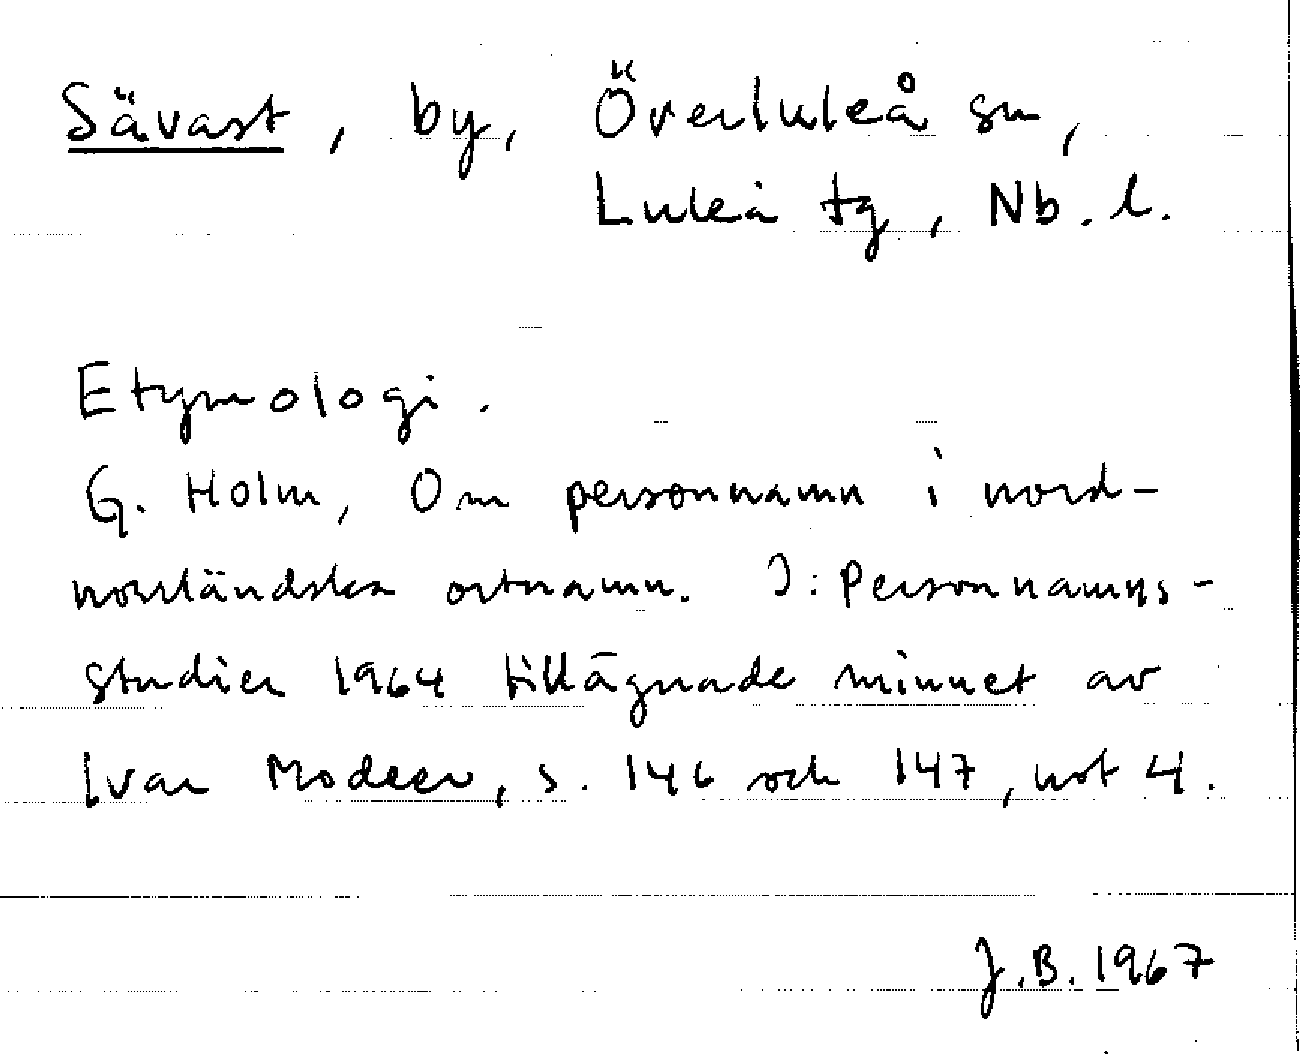 Sävast, by, Överluleå sn,
Luleå tg, Nb. l.
Etymologi.
G. Holm, Om personnamn i nord-
norrländska ortnamn. I: Personnamns-
studier 1964 tillägnade minnet av
Ivar Modéer, s. 146 och 147, not 4.
J.B. 1967